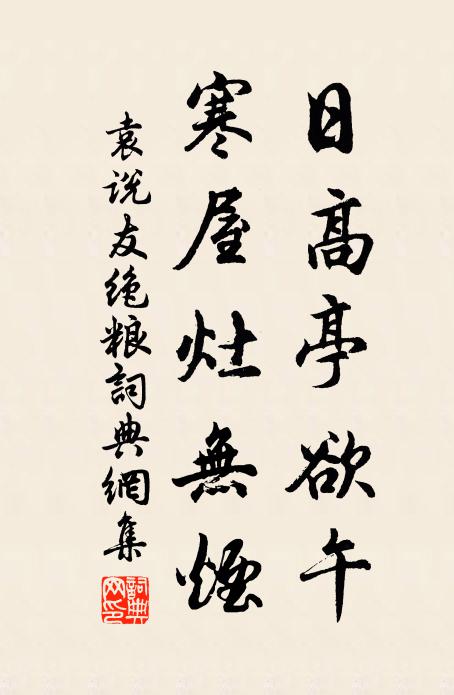 日高亭欲午
寒屋灶無煙
袁说友绝粮詞典網集
詞典網印